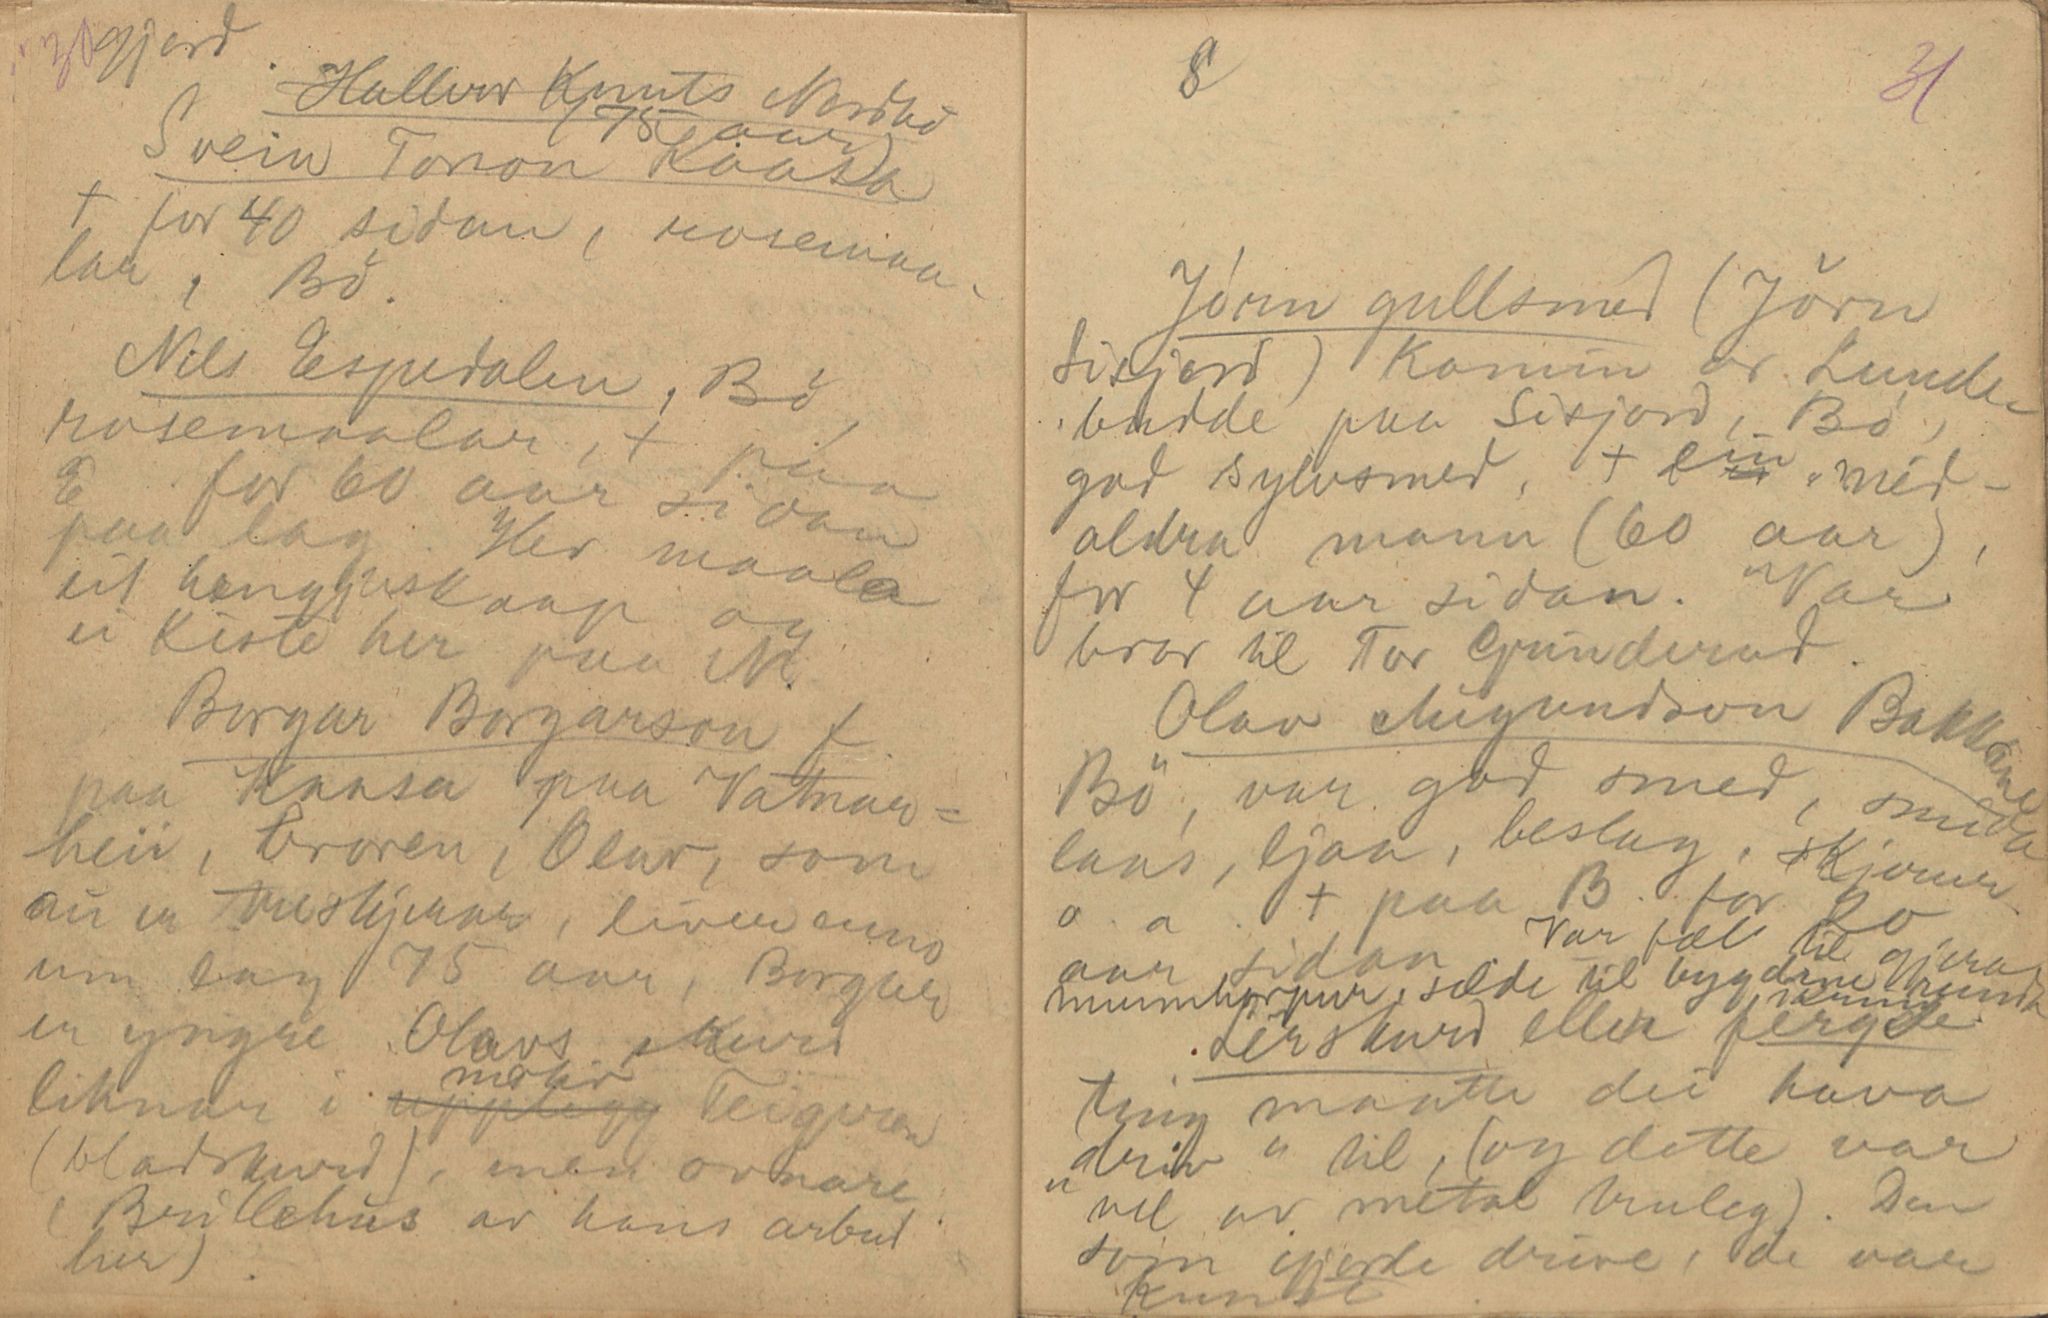 30
gjord.
Hallvor Knuts Nordbö
(75 aar)
Svein Torson Kaasa
† for 40 sidan, rosemaa-
lar, Bö.
Nils Espedalen, Bö,
rosemaalar, † paa
E for 60 aar sidan
paa lag. Her maala
eit hengjeskaap og
ei kiste her paa N.
Borgar Borgarson f.
paa Kaasa paa Vatnar=
heii, broren, Olav, som
au er treskjerar, liver enno
um lag 75 aar, Borgar
er yngre. Olavs skurd
liknar i upplegg motiv Teigen
(bladskurd), men grovare
(Brillehus av hans arbeid
her).
8
31
Jörn gullsmed (Jörn
Sisjord) Komin or Lunde
budde paa Sisjord, Bö,
god sylvsmed, † ein "mid-
aldra mann (60 aar),
for 4 aar sidan." Var
bror til Tor Grunderud.
Olav Augundson Bakkane
Bö, var god smed, smida
laas, ljaa, beslag, skjerer
o. a. † paa B. for 20
aar sidan. Var fæl til gjera
munnharpur, selde til bygdene rundt
ikring
Lerskurd eller fergde
ting maatte dei hava
"driv" til, (og dette var
vel av metal truleg). Den
som gjorde drive, de var
kunst